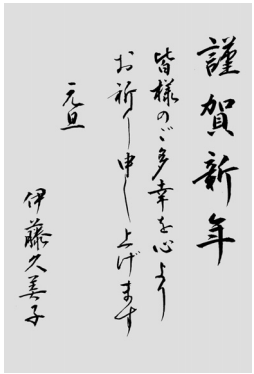 謹賀新年
皆様のご多幸を心より
お祈り申し上げます
元旦
伊藤久美子